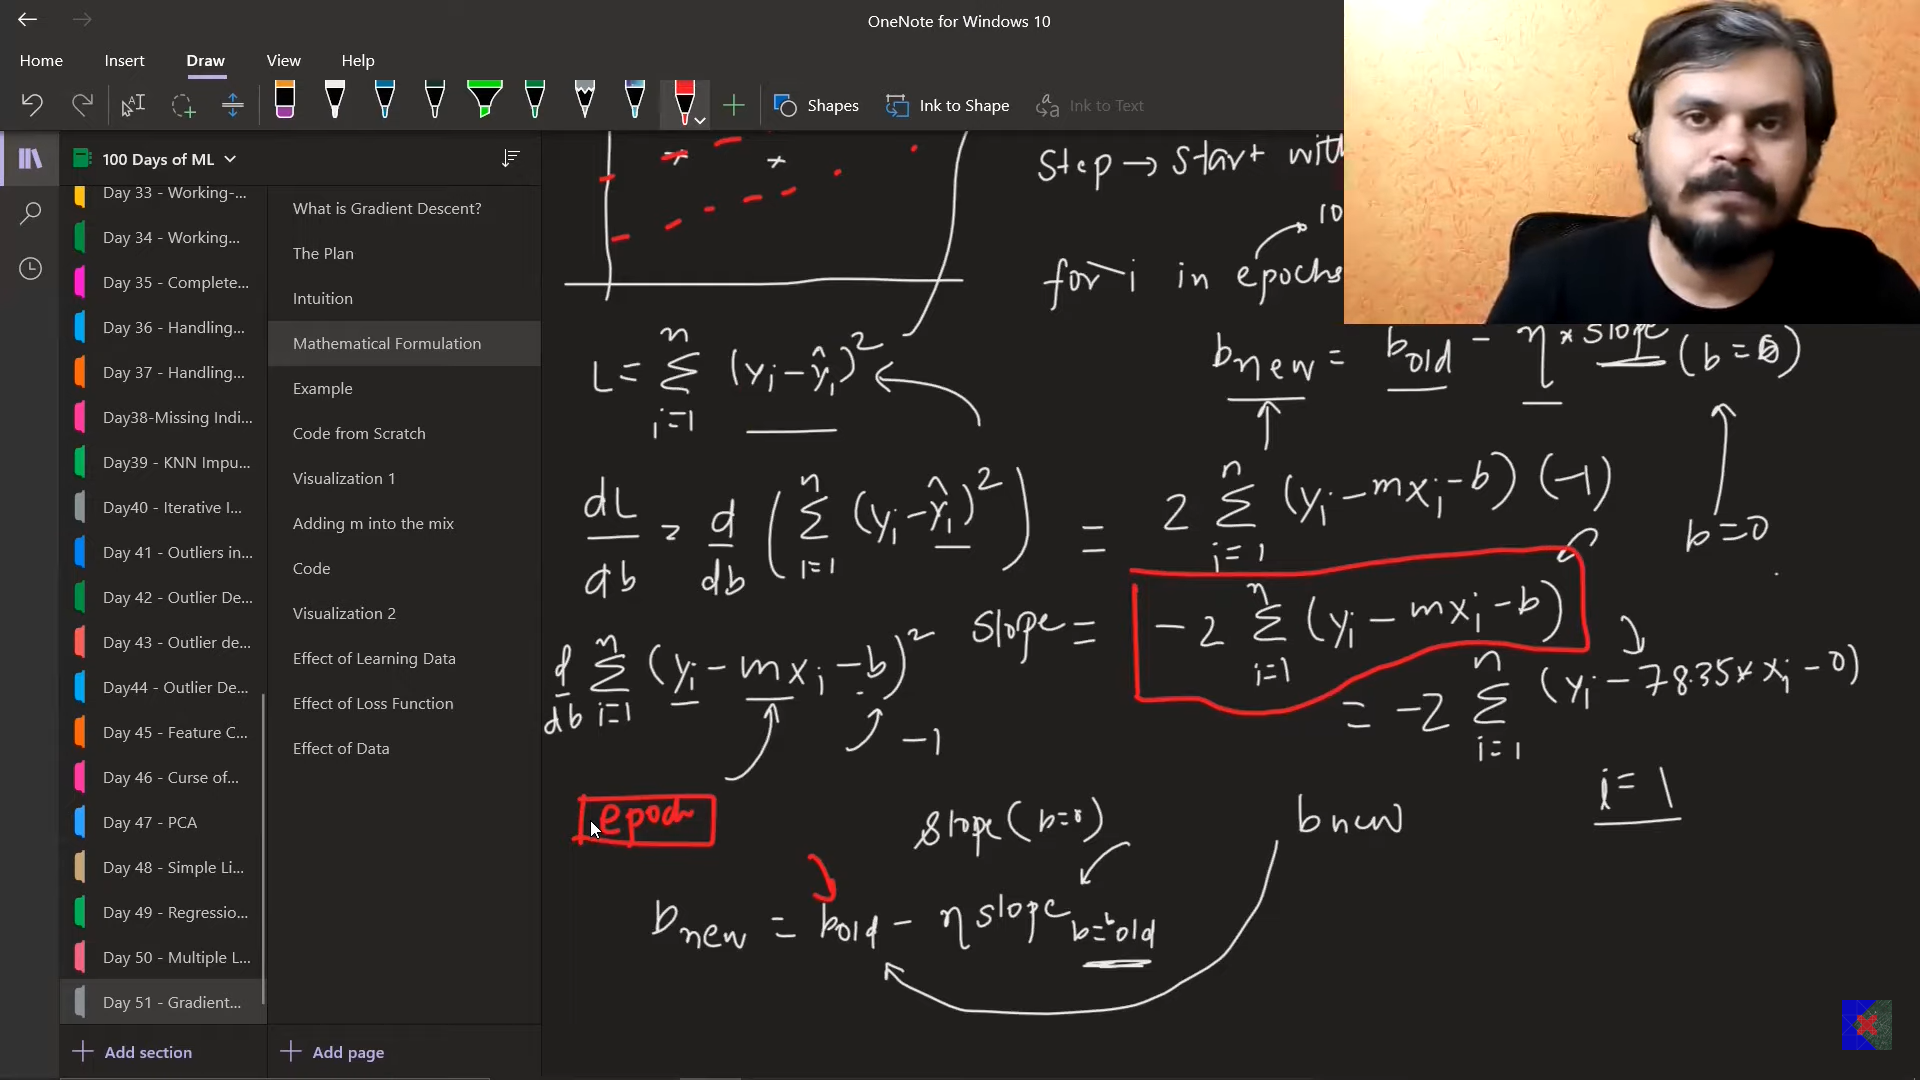 OneNote for Windows 10
Home Insert Draw View Help
Shapes Ink to Shape Ink to Text
100 Days of ML
Day 33 - Working-...
Day 34 - Working...
Day 35 - Complete...
Day 36 - Handling...
Day 37 - Handling...
Day38-Missing Indi...
Day39 - KNN Impu...
Day40 - Iterative I...
Day 41 - Outliers in...
Day 42 - Outlier De...
Day 43 - Outlier de...
Day44 - Outlier De...
Day 45 - Feature C...
Day 46 - Curse of...
Day 47 - PCA
Day 48 - Simple Li...
Day 49 - Regressio...
Day 50 - Multiple L...
Day 51 - Gradient...
Add section
What is Gradient Descent?
The Plan
Intuition
Mathematical Formulation
Example
Code from Scratch
Visualization 1
Adding m into the mix
Code
Visualization 2
Effect of Learning Data
Effect of Loss Function
Effect of Data
Add page
Step → start with
10
for i in epochs
b_new = b_old - η * slope (b=0)
L = Σ_{i=1}^{n} (y_i - ŷ_i)²
dL/db = d/db (Σ_{i=1}^{n} (y_i - ŷ_i)²) = 2 Σ_{i=1}^{n} (y_i - mx_i - b) (-1)
b=0
d/db Σ_{i=1}^{n} (y_i - mx_i - b)²
-1
slope = -2 Σ_{i=1}^{n} (y_i - mx_i - b)
= -2 Σ_{i=1}^{n} (y_i - 78.35 * x_i - 0)
i = 1
epoch
slope (b=0)
b new
b_new = b_old - η slope b=b_old